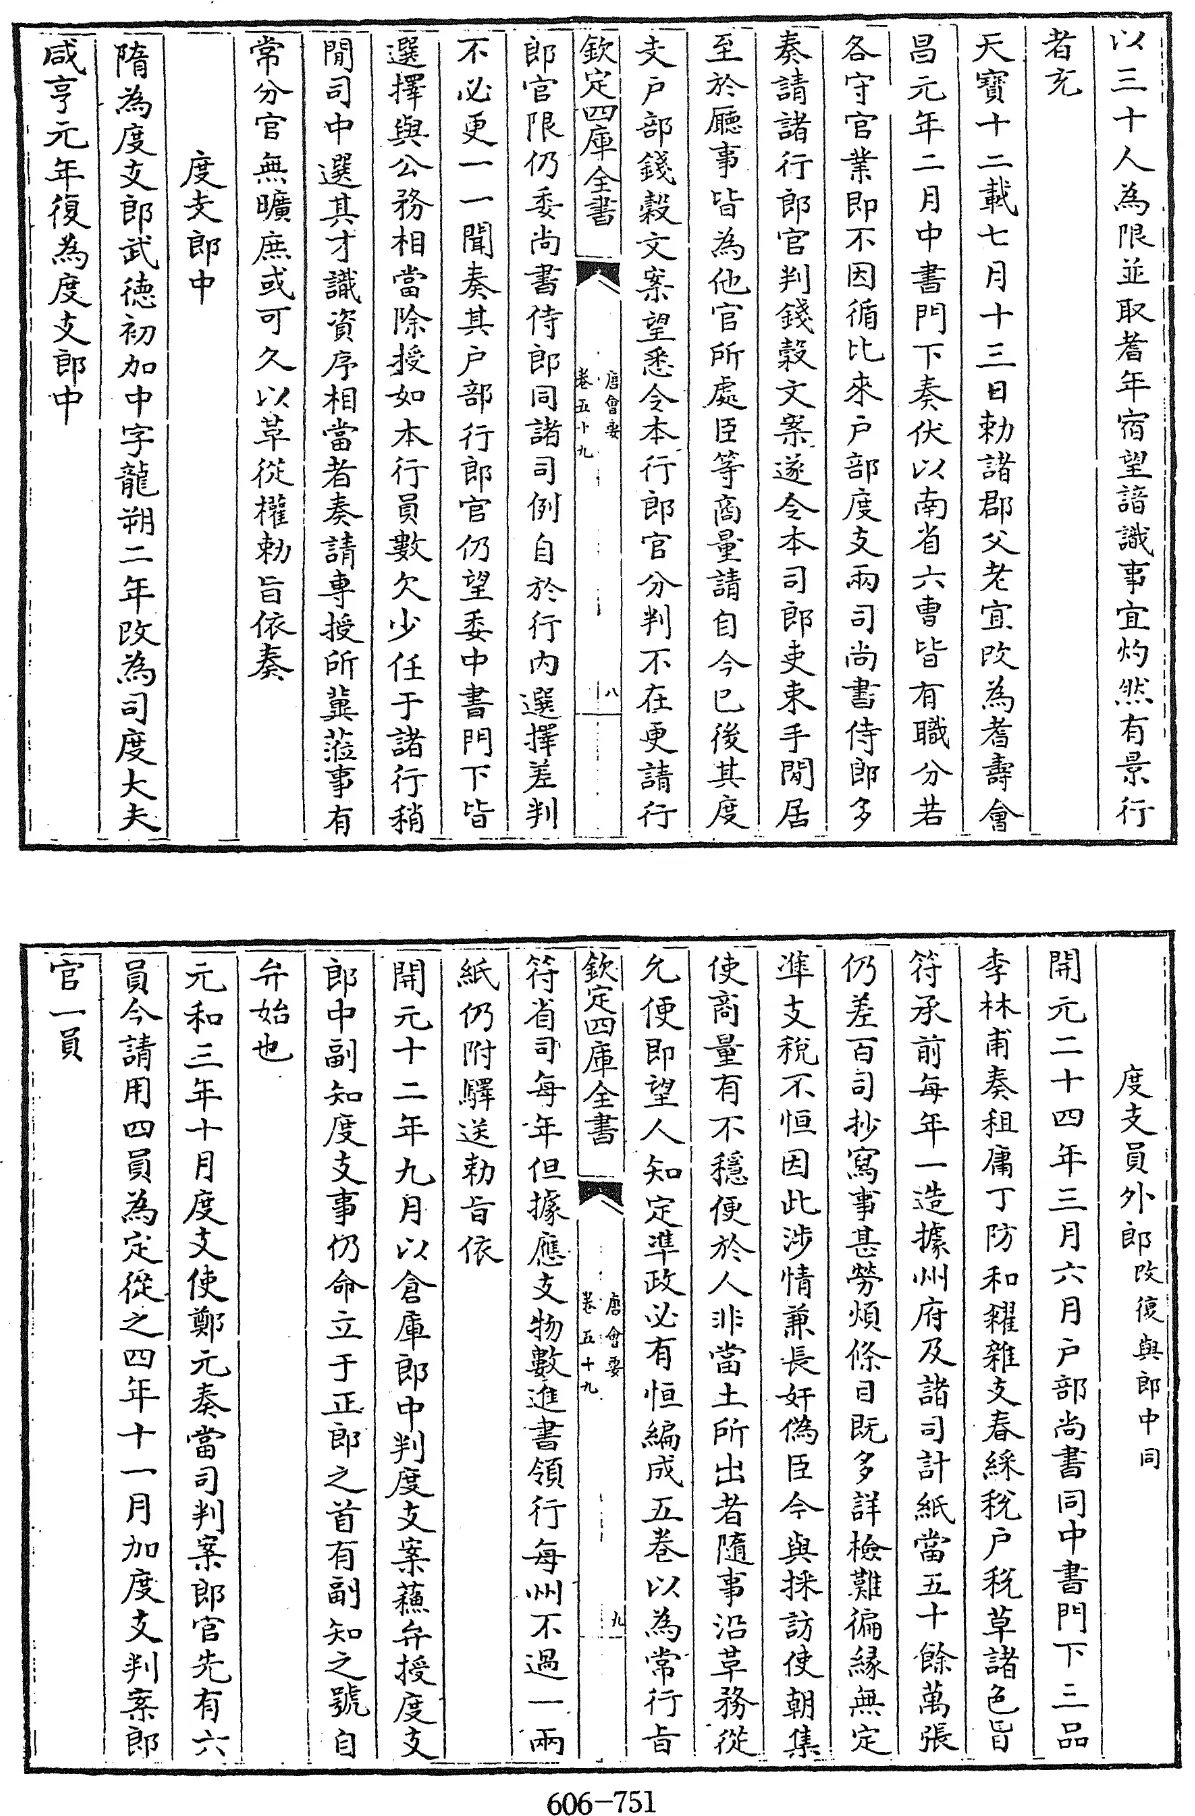 以三十人為限並取耆年宿望諳識事宜灼然有景行
者充
天寶十二載七月十三日勅諸郡父老宜改為耆壽會
昌元年二月中書門下奏伏以南省六曹皆有職分若
各守官業即不因循比來户部度支兩司尚書侍郎多
奏請諸行郎官判錢穀文案遂令本司郎吏束手閒居
至於廳事皆為他官所處臣等商量請自今已後其度
支户部錢穀文案望悉令本行郎官分判不在更請行
欽定四庫全書
唐會要
卷五十九
八
郎官限仍委尚書侍郎同諸司例自於行内選擇差判
不必更一一聞奏其户部行郎官仍望委中書門下皆
選擇與公務相當除授如本行員數欠少任于諸行稍
閒司中選其才識資序相當者奏請專授所冀蒞事有
常分官無曠庶或可久以革從權勅旨依奏
度支郎中
隋為度支郎武德初加中字龍朔二年改為司度大夫
咸亨元年復為度支郎中
度支員外郎改復與郎中同
開元二十四年三月六日户部尚書同中書門下三品
李林甫奏租庸丁防和糴雜支春綵稅户稅草諸色旨
符承前每年一造據州府及諸司計紙當五十餘萬張
仍差百司抄寫事甚勞煩條目既多詳檢難徧緣無定
準支稅不恒因此涉情兼長奸僞臣今與採訪使朝集
使商量有不穩便於人非當土所出者隨事沿革務從
允便即望人知定準政必有恒編成五卷以為常行旨
欽定四庫全書
唐會要
卷五十九
九
符省司每年但據應支物數進書頒行每州不過一兩
紙仍附驛送勅旨依
開元十二年九月以倉庫郎中判度支案蘓弁授度支
郎中副知度支事仍命立于正郎之首有副知之號自
弁始也
元和三年十月度支使鄭元奏當司判案郎官先有六
員今請用四員為定從之四年十一月加度支判案郎
官一員
606-751